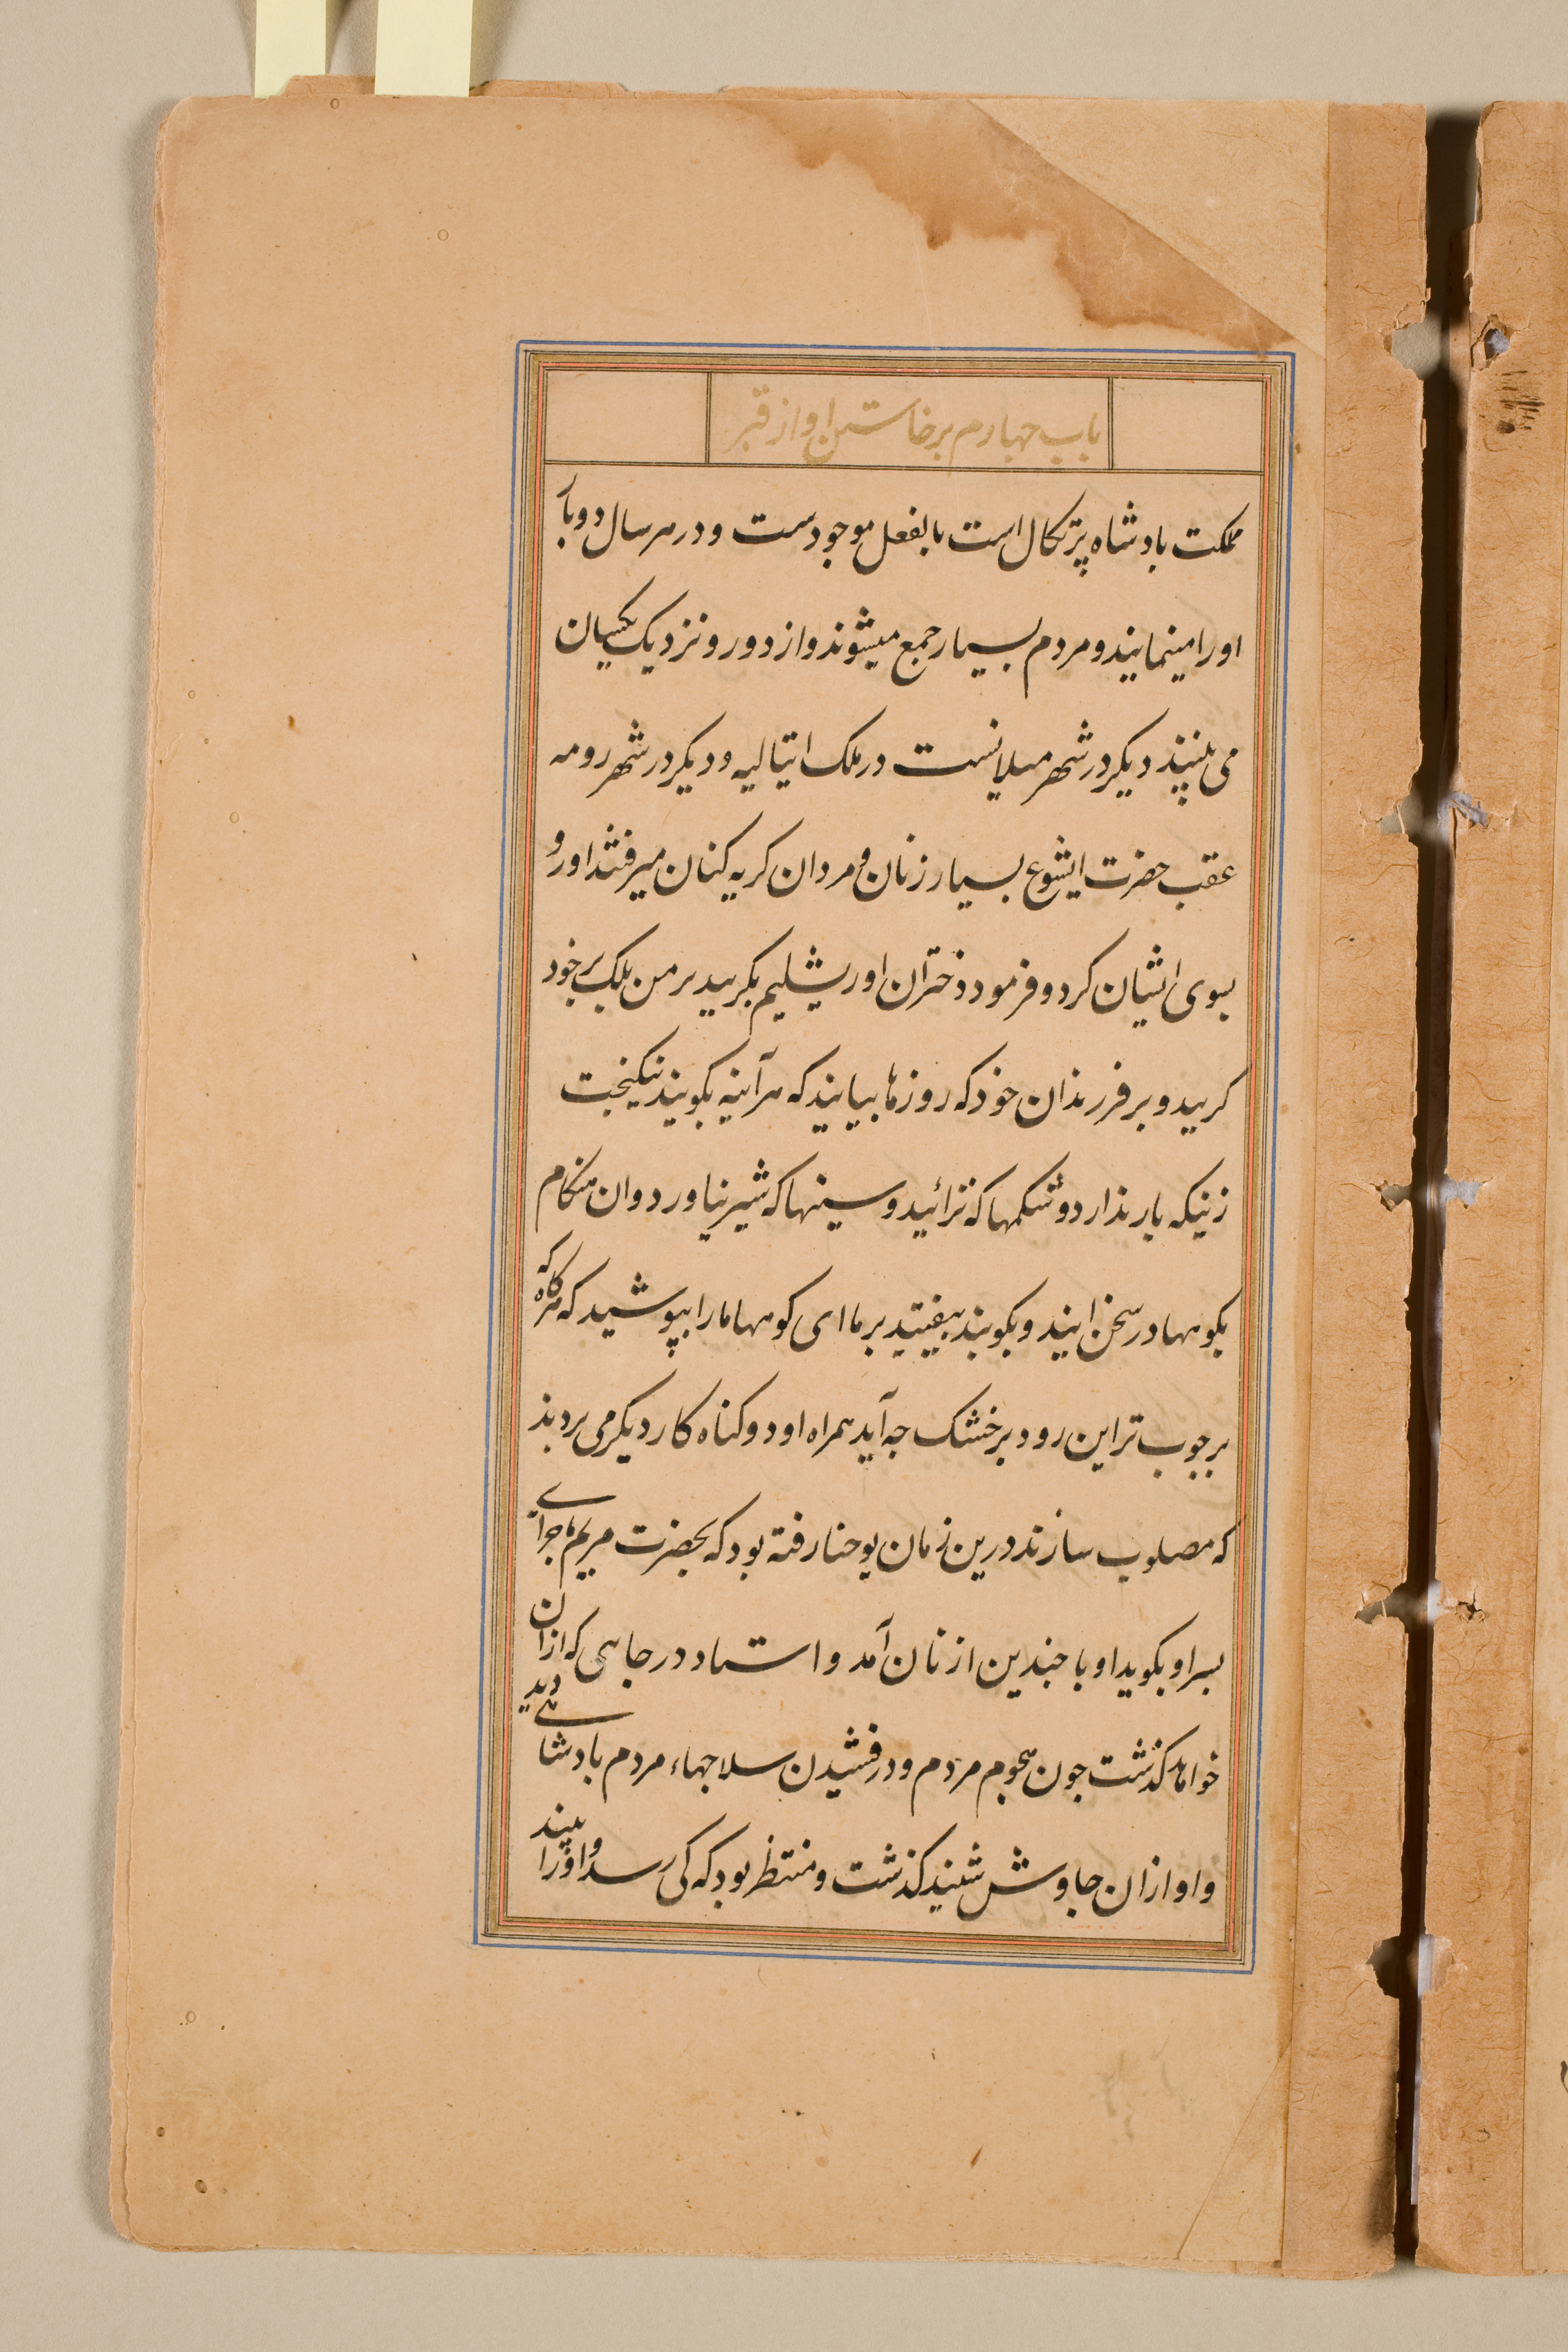 باب چهارم برخاستن او از قبر
مملکت بادشاه پرتکال است بالفعل موجودست و در هر سال دوبار
اورا مینمایند و مردم بسیار جمع میشوند و از دور و نزدیک یکسان
می بینند دیکر در شهر میلانست در ملک ایتالیه و دیکر در شهر رومه
عقب حضرت ایشوع بسیار زنان و مردان کریه کنان میرفتند او رو
بسوی ایشان کرد و فرمود دختران اورشلیم مکریید بر من بلک بر خود
کریید و بر فرزندان خود که روزها بیایند که هرآینه بکویند نیکبخت
زنیکه بار ندارد و شکمها که نزائید و سینها که شیر نیاورد و ان هنکام
بکوهها در سخن ایند و بکویند بیفتید بر ما ای کوهها ما را بپوشید که هرکاه که
بر چوب تر این رود بر خشک چه آید همراه او دو کناه کار دیکر می بردند
که مصلوب سازند درین زمان یوحنا رفته بود که بحضرت مریم ماجرای
پسر او بکوید او با چندین از زنان آمد و استاد در جایی که ازان
خواهد کذشت چون هجوم مردم و درفشیدن سلاحهاء مردم بادشاهی دید
و اواز ان جاوش شنید کذشت و منتظر بود که کی رسد و او را بیند